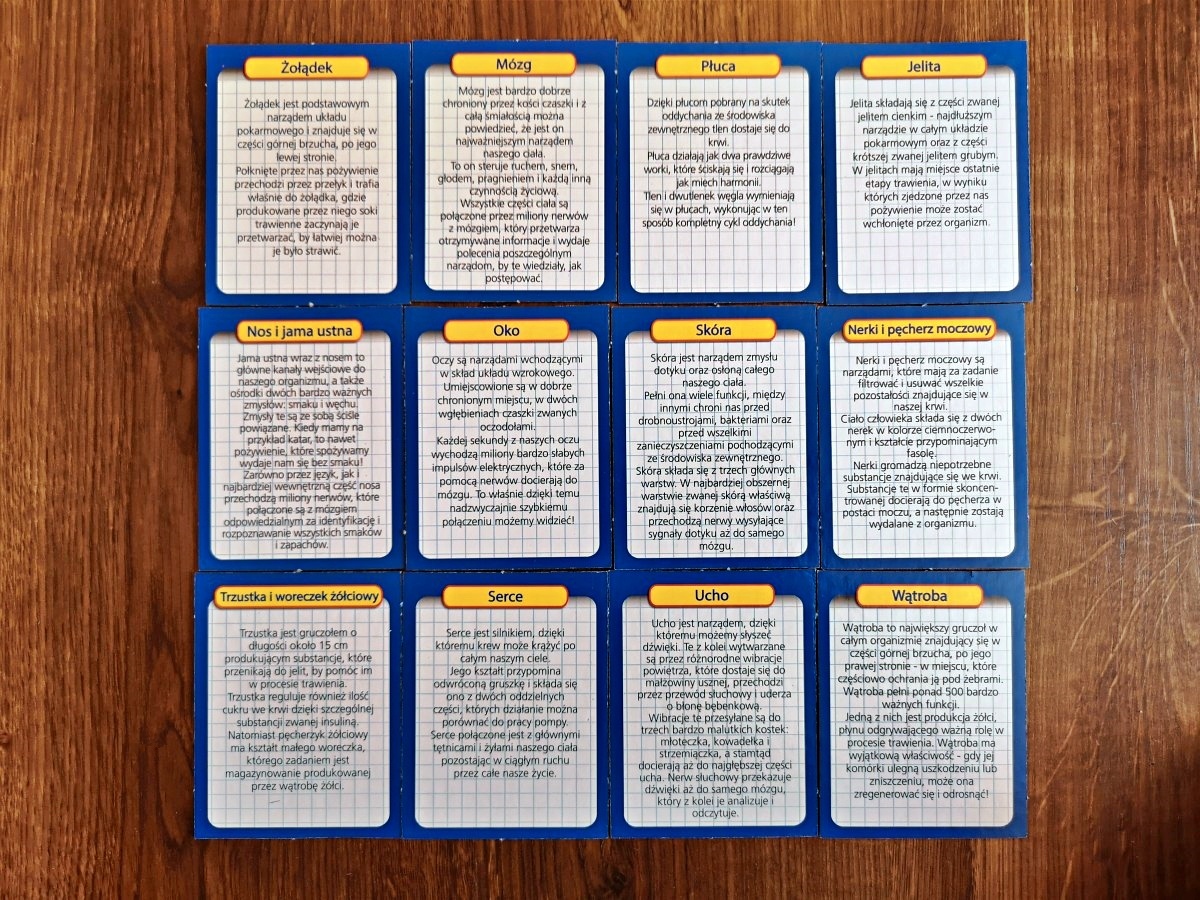 Żołądek
Żołądek jest podstawowym
narządem układu
pokarmowego i znajduje się w
części górnej brzucha, po jego
lewej stronie.
Połknięte przez nas pożywienie
przechodzi przez przełyk i trafia
właśnie do żołądka, gdzie
produkowane przez niego soki
trawienne zaczynają je
przetwarzać, by łatwiej można
je było strawić.
Mózg
Mózg jest bardzo dobrze
chroniony przez kości czaszki i z
całą śmiałością można
powiedzieć, że jest on
najważniejszym narządem
naszego ciała.
To on steruje ruchem, snem,
głodem, pragnieniem i każdą inną
czynnością życiową.
Wszystkie części ciała są
połączone przez miliony nerwów
z mózgiem, który przetwarza
otrzymywane informacje i wydaje
polecenia poszczególnym
narządom, by te wiedziały, jak
postępować.
Płuca
Dzięki płucom pobrany na skutek
oddychania ze środowiska
zewnętrznego tlen dostaje się do
krwi.
Płuca działają jak dwa prawdziwe
worki, które ściskają się i rozciągają
jak miech harmonii.
Tlen i dwutlenek węgla wymieniają
się w płucach, wykonując w ten
sposób kompletny cykl oddychania!
Jelita
Jelita składają się z części zwanej
jelitem cienkim - najdłuższym
narządzie w całym układzie
pokarmowym oraz z części
krótszej zwanej jelitem grubym.
W jelitach mają miejsce ostatnie
etapy trawienia, w wyniku
których zjedzone przez nas
pożywienie może zostać
wchłonięte przez organizm.
Nos i jama ustna
Jama ustna wraz z nosem to
główne kanały wejściowe do
naszego organizmu, a także
ośrodki dwóch bardzo ważnych
zmysłów: smaku i węchu.
Zmysły te są ze sobą ściśle
powiązane. Kiedy mamy na
przykład katar, to nawet
pożywienie, które spożywamy
wydaje nam się bez smaku!
Zarówno przez język, jak i
najbardziej wewnętrzną część nosa
przechodzą miliony nerwów, które
połączone są z mózgiem
odpowiedzialnym za identyfikację i
rozpoznawanie wszystkich smaków
i zapachów.
Oko
Oczy są narządami wchodzącymi
w skład układu wzrokowego.
Umiejscowione są w dobrze
chronionym miejscu, w dwóch
wgłębieniach czaszki zwanych
oczodołami.
Każdej sekundy z naszych oczu
wychodzą miliony bardzo słabych
impulsów elektrycznych, które za
pomocą nerwów docierają do
mózgu. To właśnie dzięki temu
nadzwyczajnie szybkiemu
połączeniu możemy widzieć!
Skóra
Skóra jest narządem zmysłu
dotyku oraz osłoną całego
naszego ciała.
Pełni ona wiele funkcji, między
innymi chroni nas przed
drobnoustrojami, bakteriami oraz
przed wszelkimi
zanieczyszczeniami pochodzącymi
ze środowiska zewnętrznego.
Skóra składa się z trzech głównych
warstw. W najbardziej obszernej
warstwie zwanej skórą właściwą
znajdują się korzenie włosów oraz
przechodzą nerwy wysyłające
sygnały dotyku aż do samego
mózgu.
Nerki i pęcherz moczowy
Nerki i pęcherz moczowy są
narządami, które mają za zadanie
filtrować i usuwać wszelkie
pozostałości znajdujące się w
naszej krwi.
Ciało człowieka składa się z dwóch
nerek w kolorze ciemnoczerwo-
nym i kształcie przypominającym
fasolę.
Nerki gromadzą niepotrzebne
substancje znajdujące się we krwi.
Substancje te w formie skoncen-
trowanej docierają do pęcherza w
postaci moczu, a następnie zostają
wydalane z organizmu.
Trzustka i woreczek żółciowy
Trzustka jest gruczołem o
długości około 15 cm
produkującym substancje, które
przenikają do jelit, by pomóc im
w procesie trawienia.
Trzustka reguluje również ilość
cukru we krwi dzięki szczególnej
substancji zwanej insuliną.
Natomiast pęcherzyk żółciowy
ma kształt małego woreczka,
którego zadaniem jest
magazynowanie produkowanej
przez wątrobę żółci.
Serce
Serce jest silnikiem, dzięki
któremu krew może krążyć po
całym naszym ciele.
Jego kształt przypomina
odwróconą gruszkę i składa się
ono z dwóch oddzielnych
części, których działanie można
porównać do pracy pompy.
Serce połączone jest z głównymi
tętnicami i żyłami naszego ciała
pozostając w ciągłym ruchu
przez całe nasze życie.
Ucho
Ucho jest narządem, dzięki
któremu możemy słyszeć
dźwięki. Te z kolei wytwarzane
są przez różnorodne wibracje
powietrza, które dostaje się do
małżowiny usznej, przechodzi
przez przewód słuchowy i uderza
o błonę bębenkową.
Wibracje te przesyłane są do
trzech bardzo malutkich kostek:
młoteczka, kowadełka i
strzemiączka, a stamtąd
docierają aż do najgłębszej części
ucha. Nerw słuchowy przekazuje
dźwięki aż do samego mózgu,
który z kolei je analizuje i
odczytuje.
Wątroba
Wątroba to największy gruczoł w
całym organizmie znajdujący się w
części górnej brzucha, po jego
prawej stronie - w miejscu, które
częściowo ochrania ją pod żebrami.
Wątroba pełni ponad 500 bardzo
ważnych funkcji.
Jedną z nich jest produkcja żółci,
płynu odgrywającego ważną rolę w
procesie trawienia. Wątroba ma
wyjątkową właściwość - gdy jej
komórki ulegną uszkodzeniu lub
zniszczeniu, może ona
zregenerować się i odrosnąć!